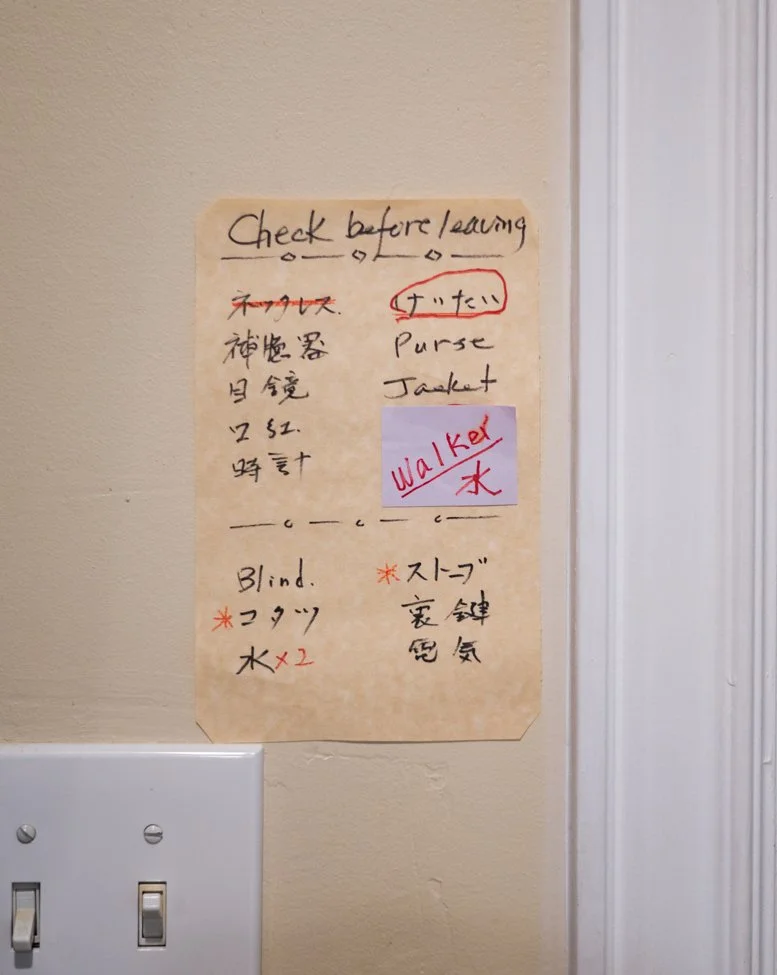 Check before leaving
ネックレス.
補聴器
目鏡
口紅.
時計
けいたい
Purse
Jacket
Walker
水
Blind.
*コタツ
水×2
*ストーブ
裏鍵
電気